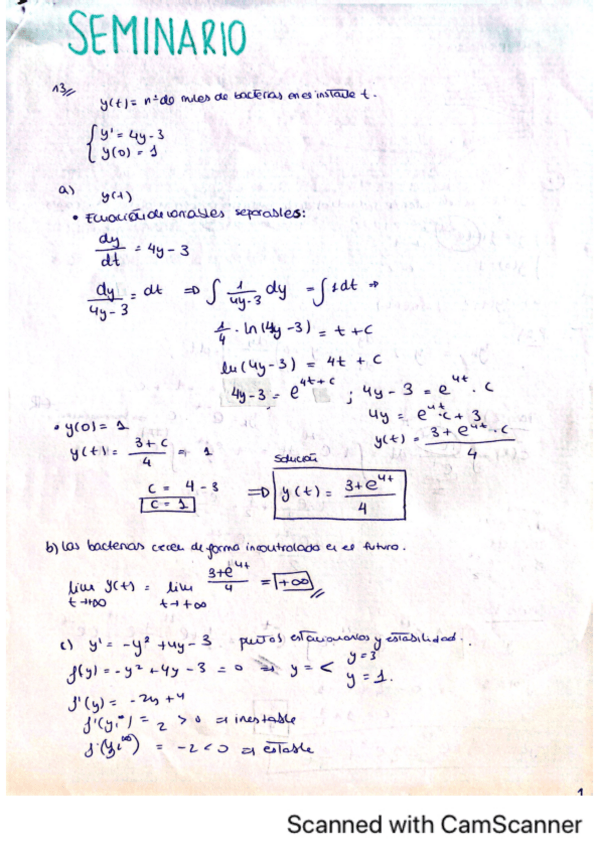 SEMINARIO
13//
y(t) = nº de miles de bacterias en el instante t.
{ y' = 4y - 3
y(0) = 1
a) y(t)
• Ecuación de variables separables:
dy/dt = 4y - 3
dy/(4y-3) = dt ⇒ ∫ 1/(4y-3) dy = ∫ 1 dt ⇒
1/4 · ln(4y-3) = t + c
ln(4y-3) = 4t + c
4y-3 = e^(4t+c) ; 4y - 3 = e^(4t) · c
4y = e^(4t) · c + 3
y(t) = (3 + e^(4t) · c)/4
• y(0) = 1
y(t) = (3 + c)/4 = 1
c = 4 - 3
c = 1
Solución
⇒ y(t) = (3 + e^(4t))/4
b) Las bacterias crecen de forma incontrolada en el futuro.
lim t→+∞ y(t) = lim t→+∞ (3+e^(4t))/4 = +∞ //
c) y' = -y² + 4y - 3 puntos estacionarios y estabilidad.
f(y) = -y² + 4y - 3 = 0 → y = < y = 3
y = 1.
f'(y) = -2y + 4
= 2 > 0 ⇒ inestable
= -2 < 0 ⇒ estable
1
Scanned with CamScanner